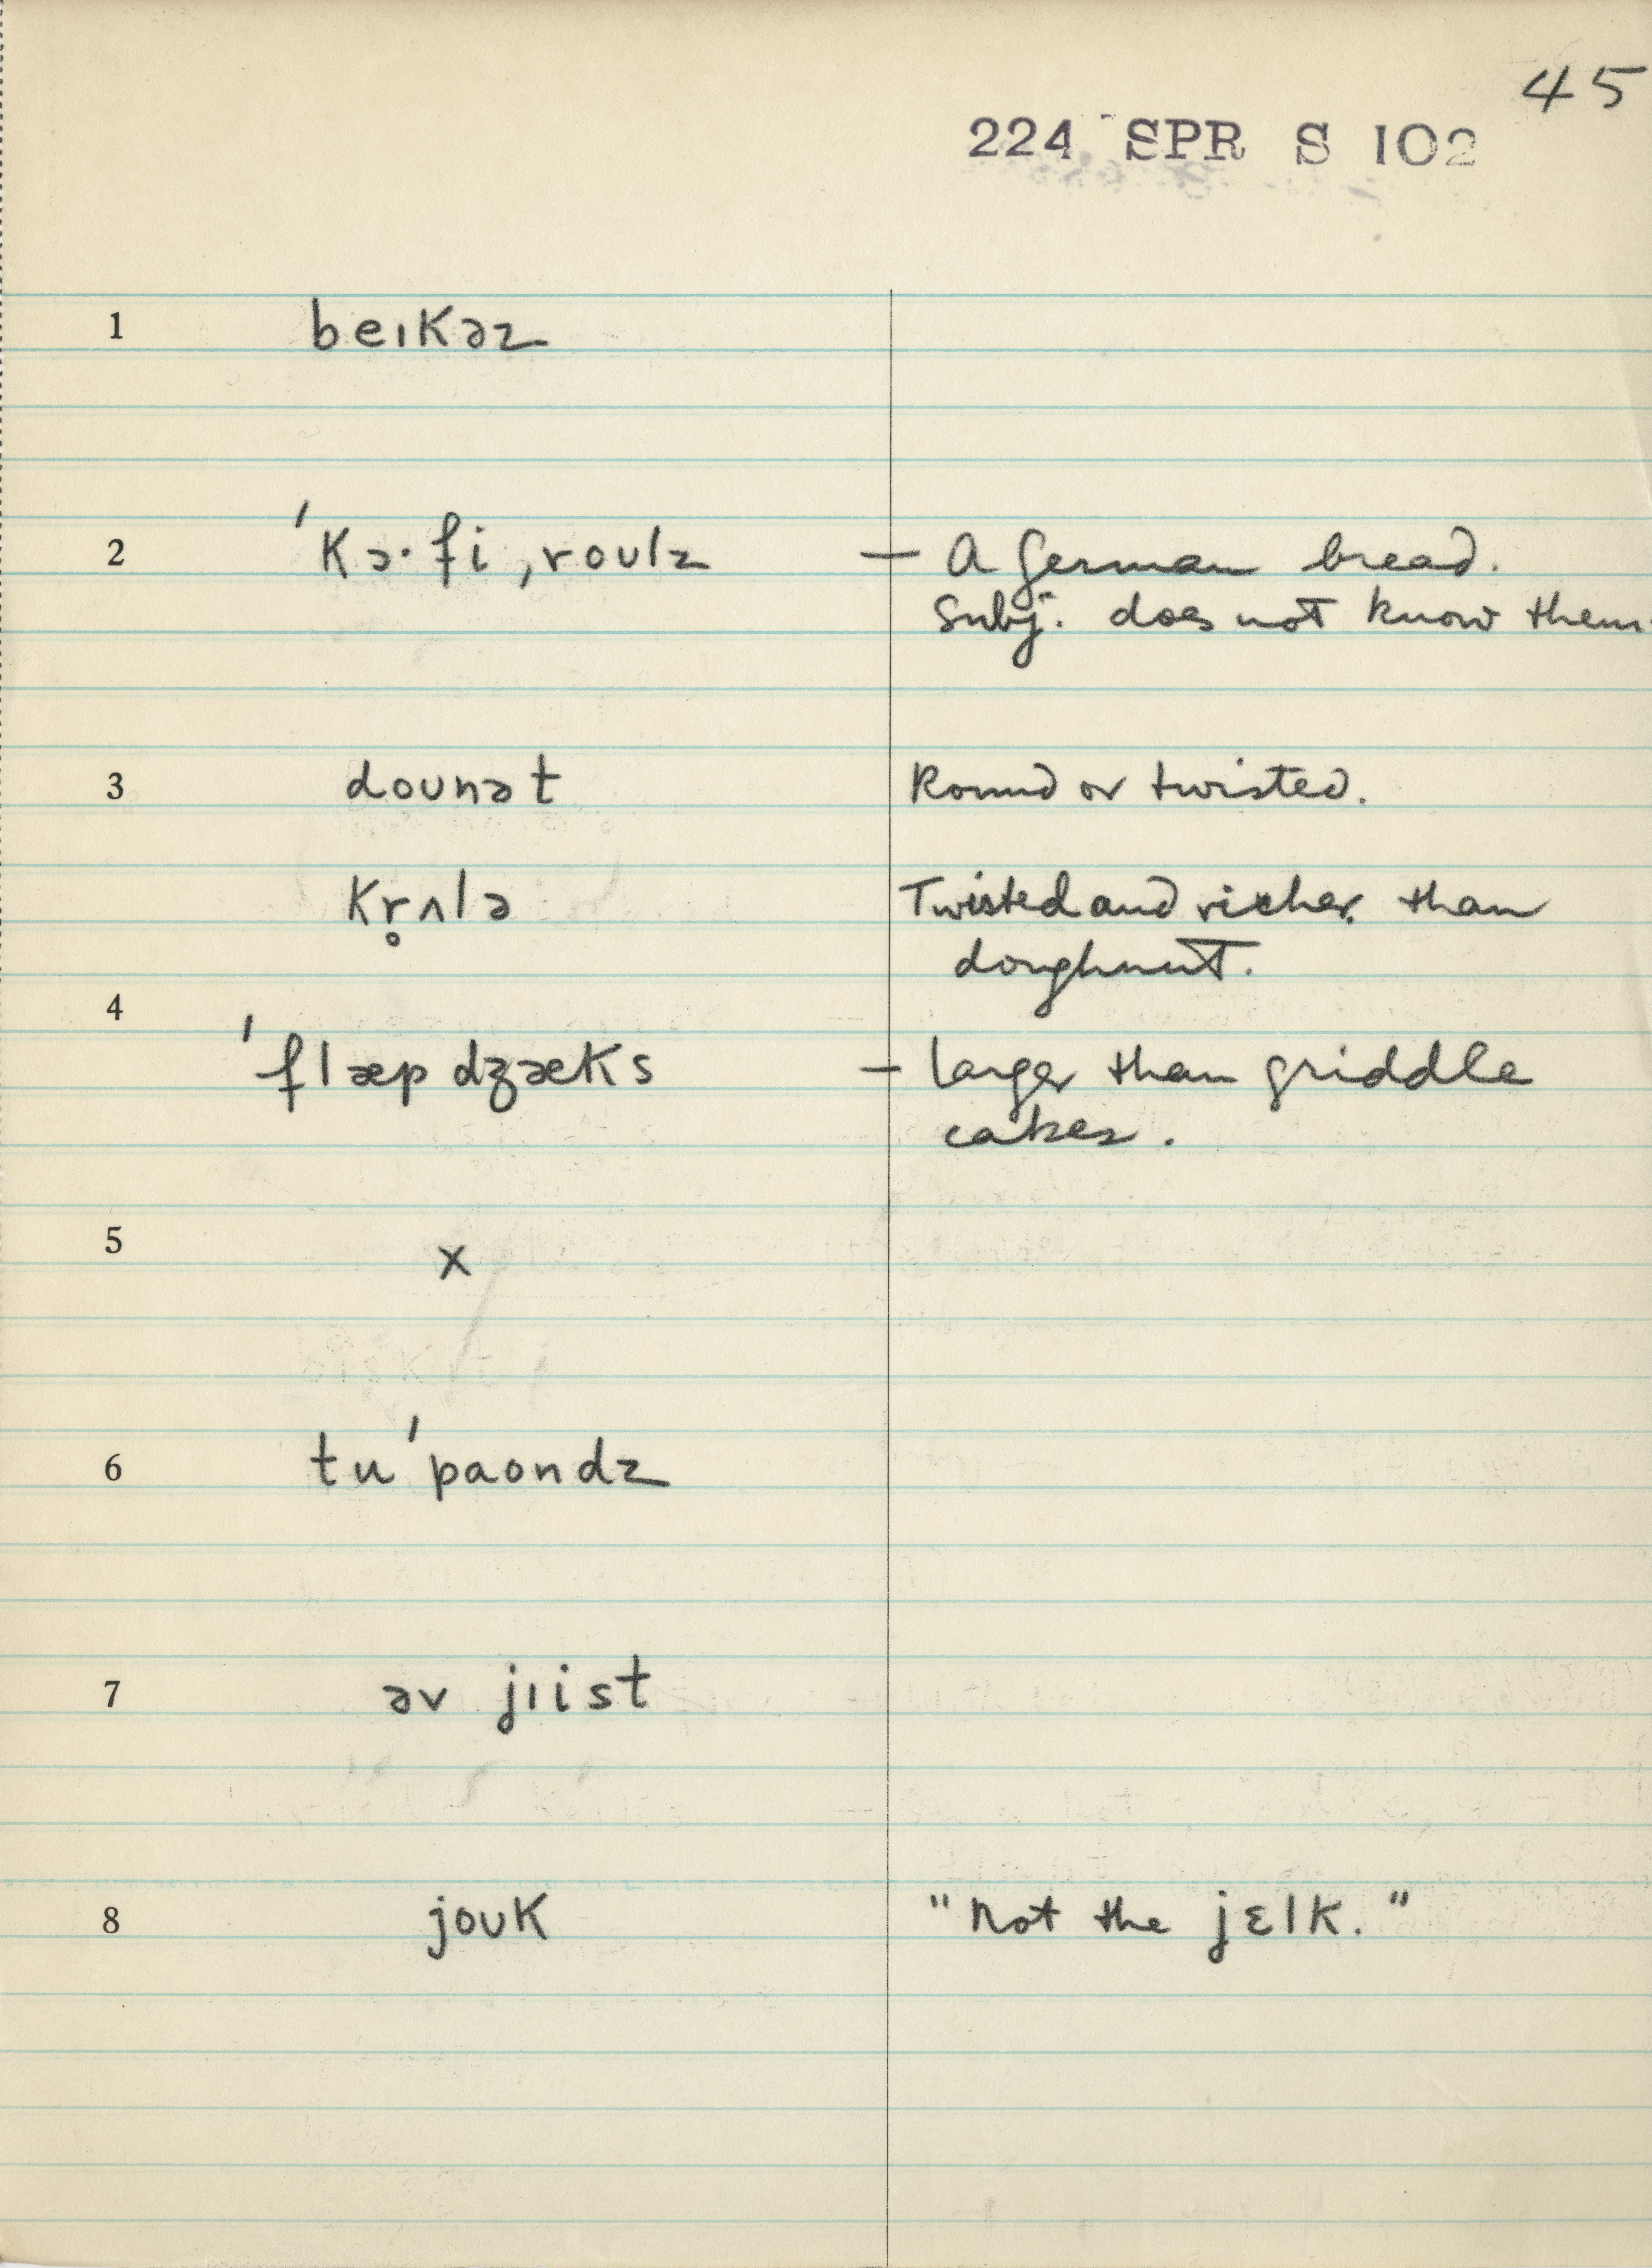 45
224 SPR S 102
1 beɪkəz
2 ˈkɔ·fi ˌroʊlz — A German bread.
Subj. does not know them.
3 doʊnət Round or twisted.
kr̥ʌlə Twisted and richer than
doughnut.
4
ˈflæpdʒæks — larger than griddle
cakes.
5 x
6 tuˈpaondz
7 əv jɪist
8 joʊk "not the jɛlk."